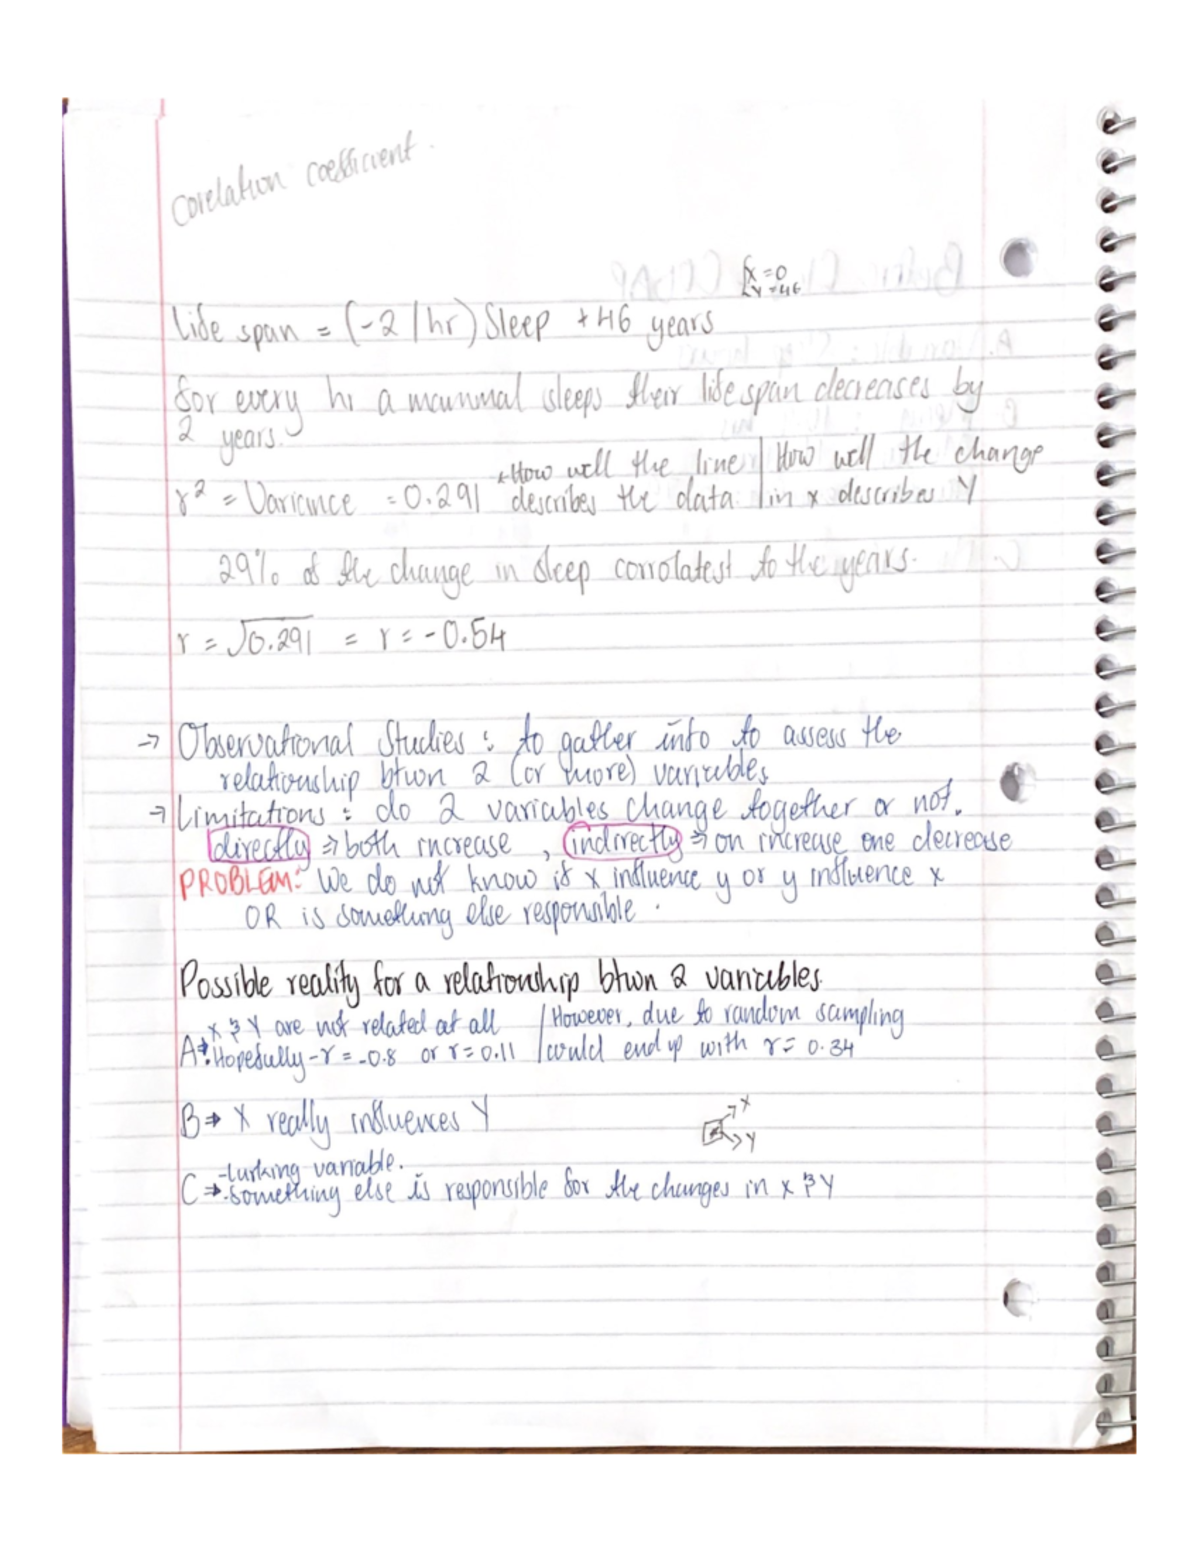 Corelation coefficient.
x=0
y=46
life span = (-2/hr) Sleep + 46 years
for every hr a mammal sleeps their life span decreases by
2 years.
r² = Variance = 0.291 *How well the line describes the data. | How well the change in x describes Y
29% of the change in sleep corrolatest to the years.
r = √0.291 = r = -0.54
→ Observational Studies : to gather info to assess the
relationship btwn 2 (or more) variables
→ Limitations : do 2 variables change together or not.
directly ⇒ both increase , indirectly ⇒ on increase one decrease
PROBLEM: We do not know if x influence y or y influence x
OR is something else responsible.
Possible reality for a relationship btwn 2 variables.
A⇒ X & Y are not related at all | However, due to random sampling
Hopefully - r = -0.8 or r = 0.11 | could end up with r = 0.34
B ⇒ X really influences Y
X
Y
-Lurking variable.
C ⇒ -Something else is responsible for the changes in x & Y